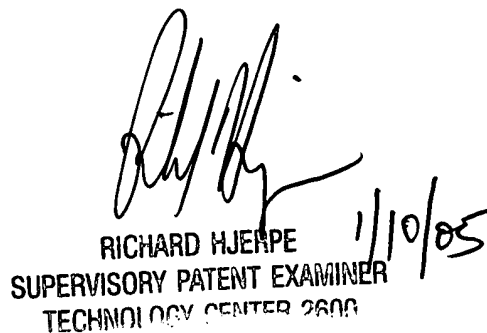 RICHARD HJERPE 1/10/05
SUPERVISORY PATENT EXAMINER
TECHNOLOGY CENTER 2600